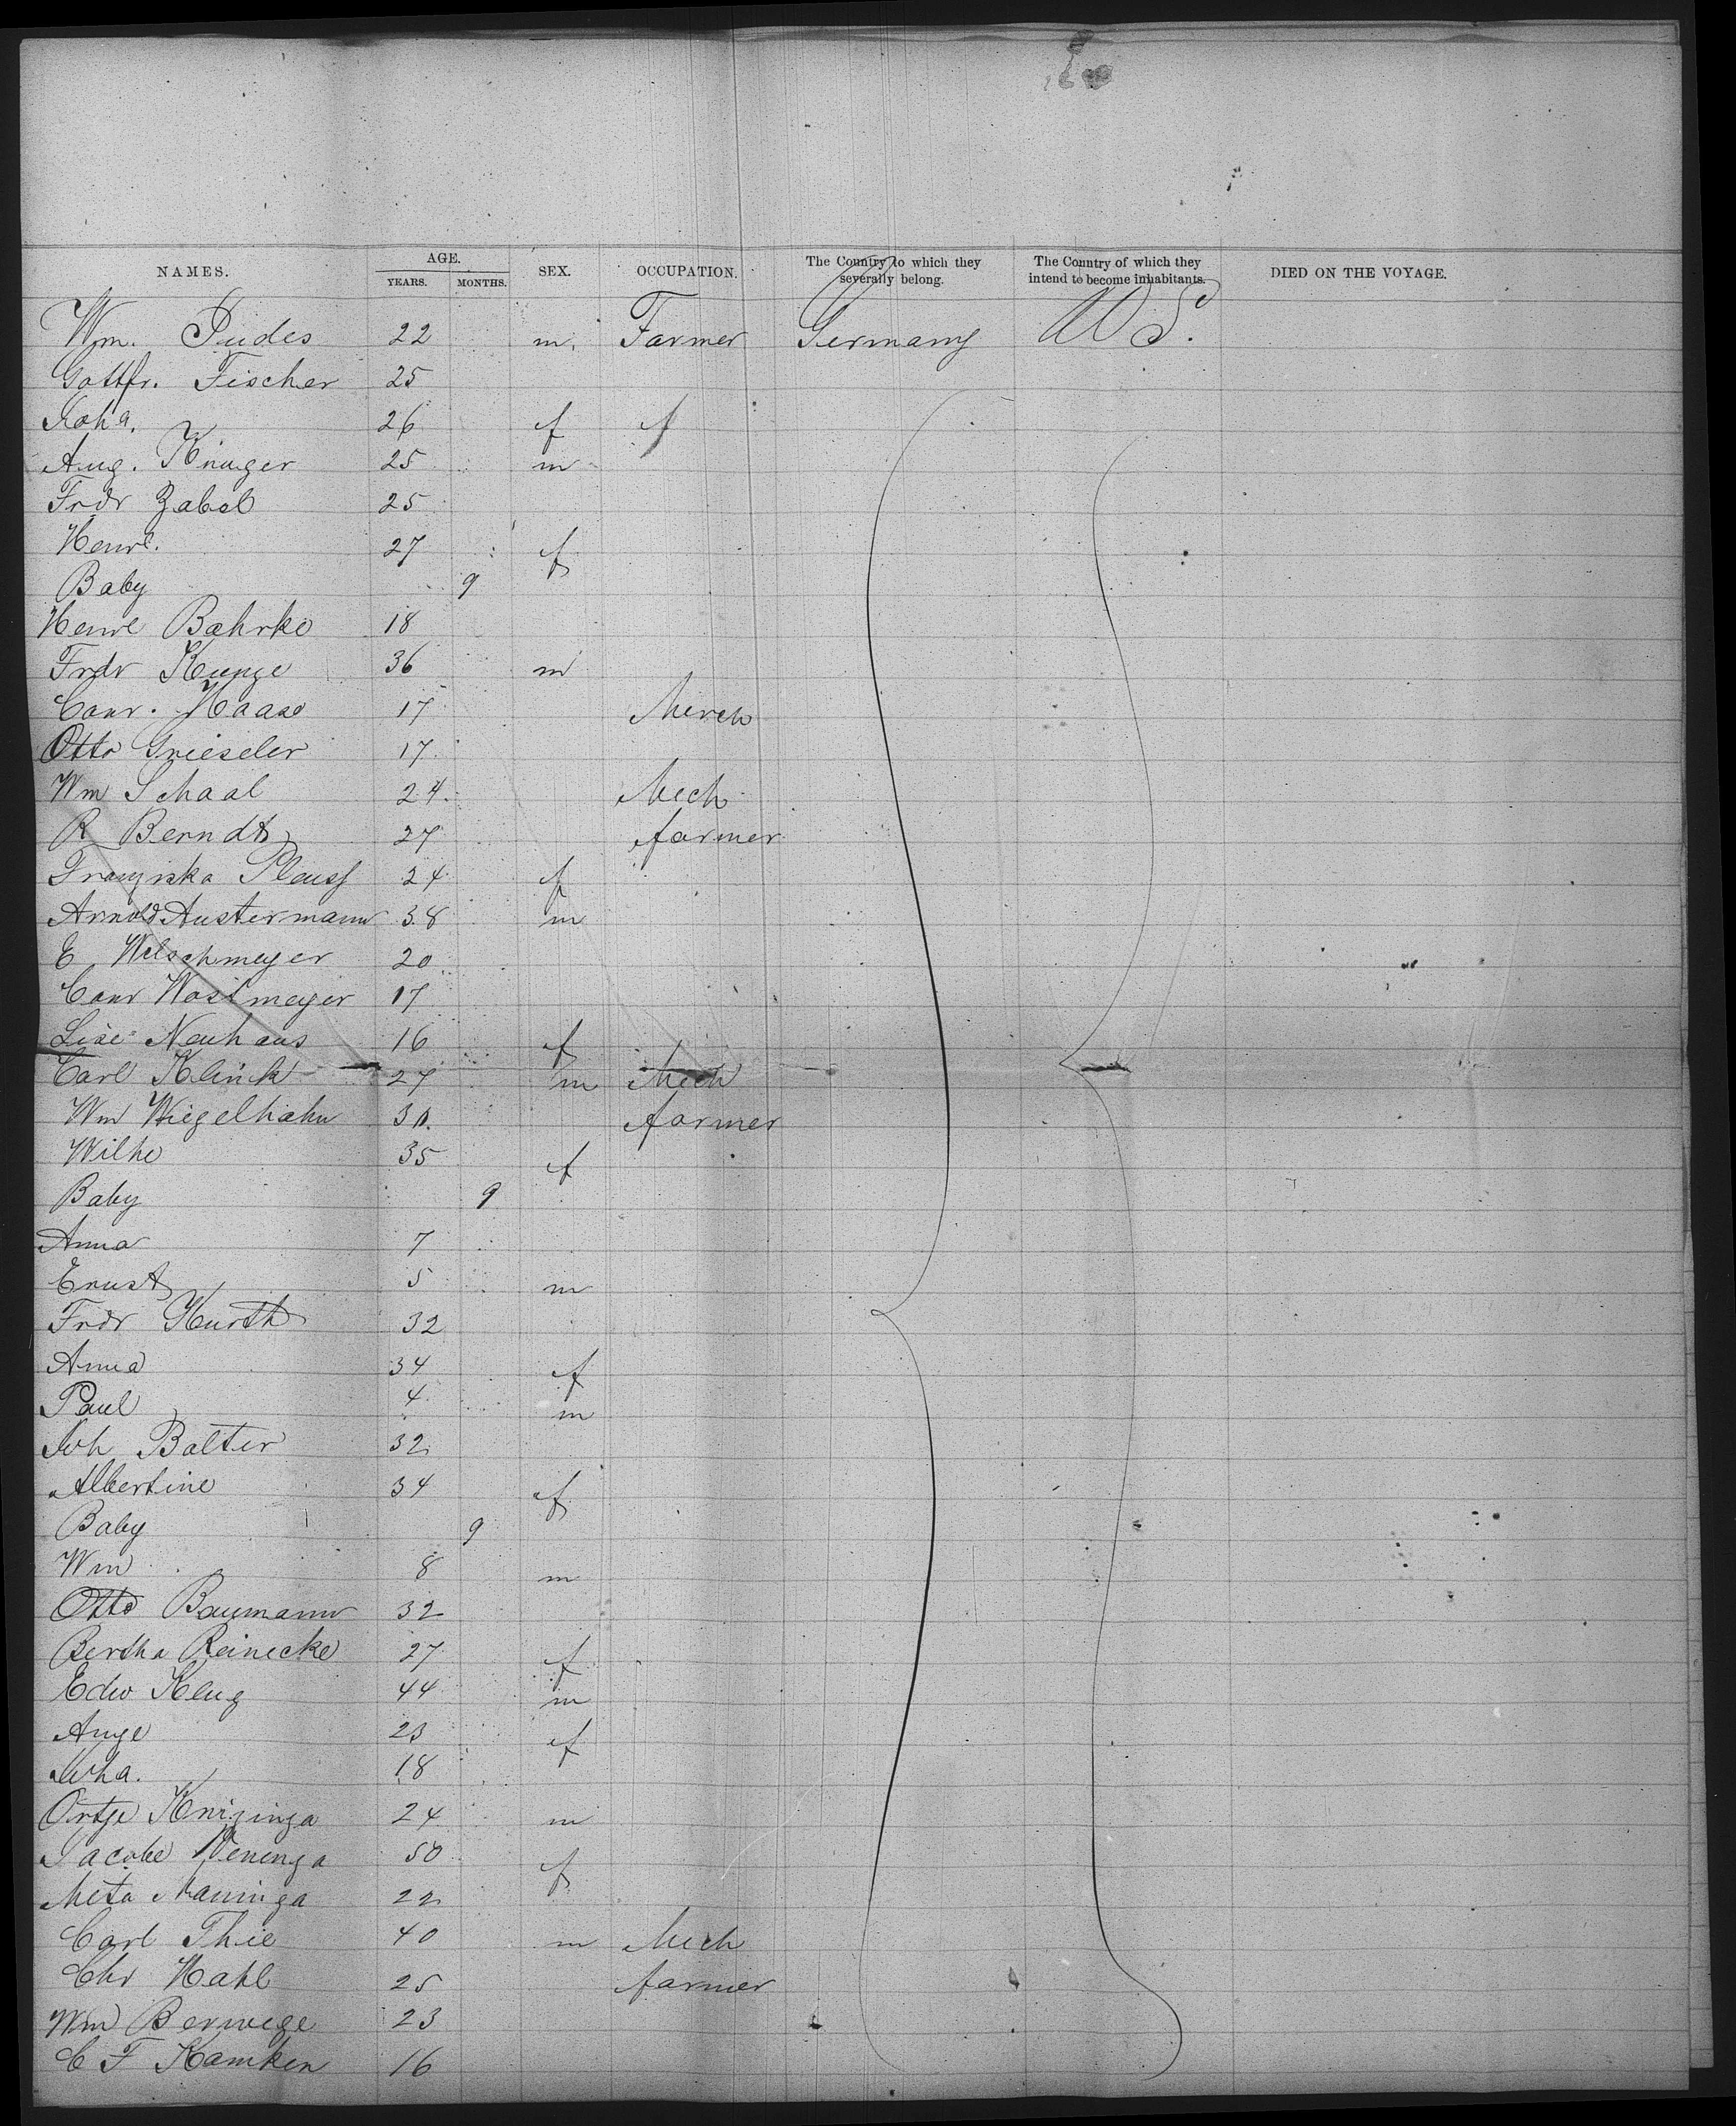 NAMES. AGE. YEARS. MONTHS. SEX. OCCUPATION. The Country to which they severally belong. The Country of which they intend to become inhabitants. DIED ON THE VOYAGE.
Wm. Pudes 22 m. Farmer Germany U S.
Gottfr. Fischer 25
Joha. 26 f f
Aug. Kruger 25 m
Frdr Zabel 25
Henre. 27 f
Baby 9
Henre Bahrke 18
Frdr Kunze 36 m
Conr. Haase 17 Merch
Otto Grieseler 17
Wm Schaal 24 Mech
R Berndt 27 farmer
Franziska 24 f
Arnold Austermann 38 m
E Welschmeyer 20
Conr Wostmeyer 17
Lise Neuhaus 16 f
Carl Klink 27 m Mech
Wm Wiegelhahn 30 farmer
Wilhe 35 f
Baby 9
Anna 7
Ernst 5 m
Frdr Kurth 32
Anna 34 f
Paul 4 m
Joh Balter 32
Albertine 34 f
Baby 9
Wm 8 m
Otto Baumann 32
Bertha Reinecke 27 f
Edw Klug 44 m
Auge 23 f
Joha. 18
Ortje 24 m
Jacobe 50 f
Meta 22
Carl Thie 40 m Mech
Chr Hahl 25 farmer
Wm Berwege 23
C F Kamken 16